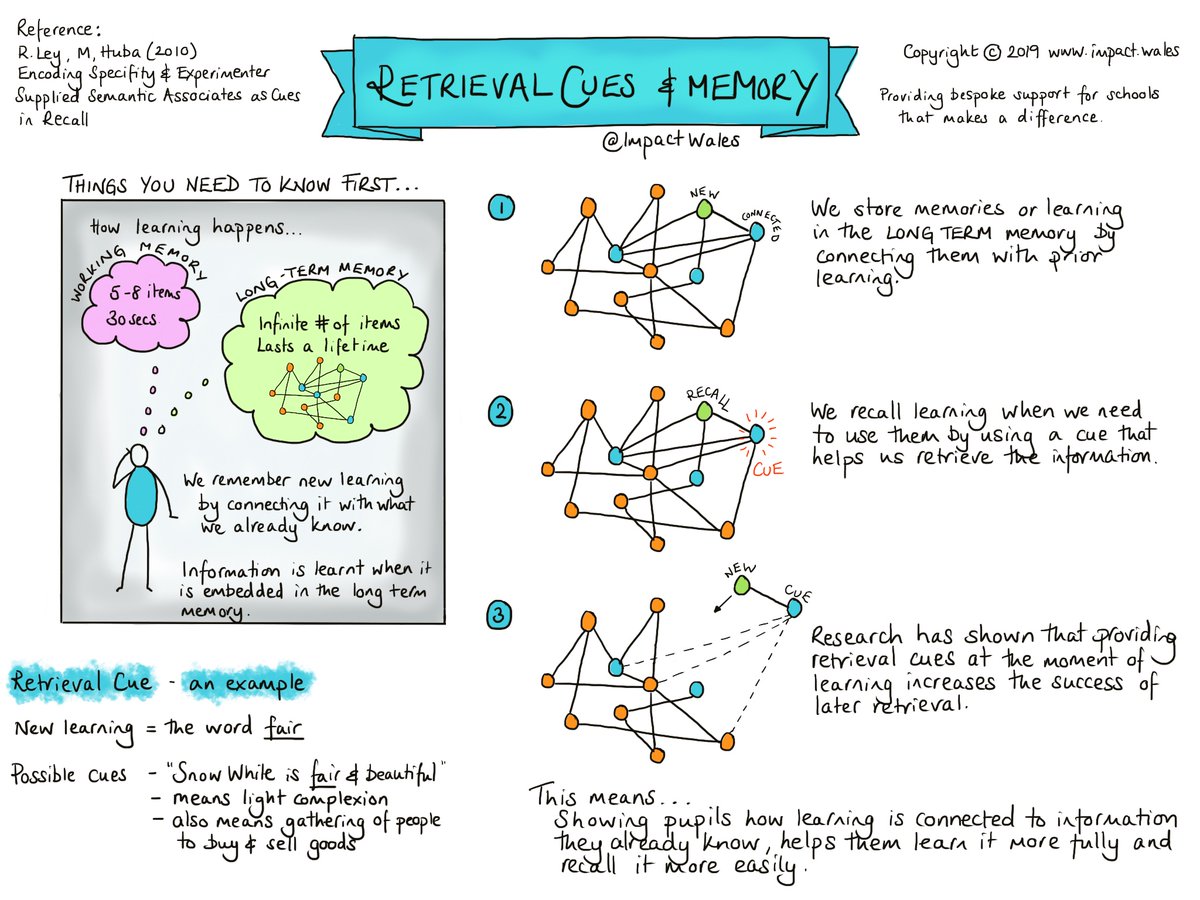 Reference:
R.Ley, M, Huba (2010)
Encoding Specifity & Experimenter
Supplied Semantic Associates as Cues
in Recall
RETRIEVAL CUES & MEMORY
@ImpactWales
Copyright © 2019 www.impact.wales
Providing bespoke support for schools
that makes a difference.
THINGS YOU NEED TO KNOW FIRST...
How learning happens...
WORKING MEMORY
5-8 items
30secs
LONG-TERM MEMORY
Infinite # of items
Lasts a lifetime
We remember new learning
by connecting it with what
we already know.
Information is learnt when it
is embedded in the long term
memory.
Retrieval Cue - an example
New learning = the word fair
Possible cues - "Snow While is fair & beautiful"
- means light complexion
- also means gathering of people
to buy & sell goods
1
NEW
CONNECTED
We store memories or learning
in the LONG TERM memory by
connecting them with prior
learning.
2
RECALL
CUE
We recall learning when we need
to use them by using a cue that
helps us retrieve the information.
3
NEW
CUE
Research has shown that providing
retrieval cues at the moment of
learning increases the success of
later retrieval.
This means...
Showing pupils how learning is connected to information
they already know, helps them learn it more fully and
recall it more easily.